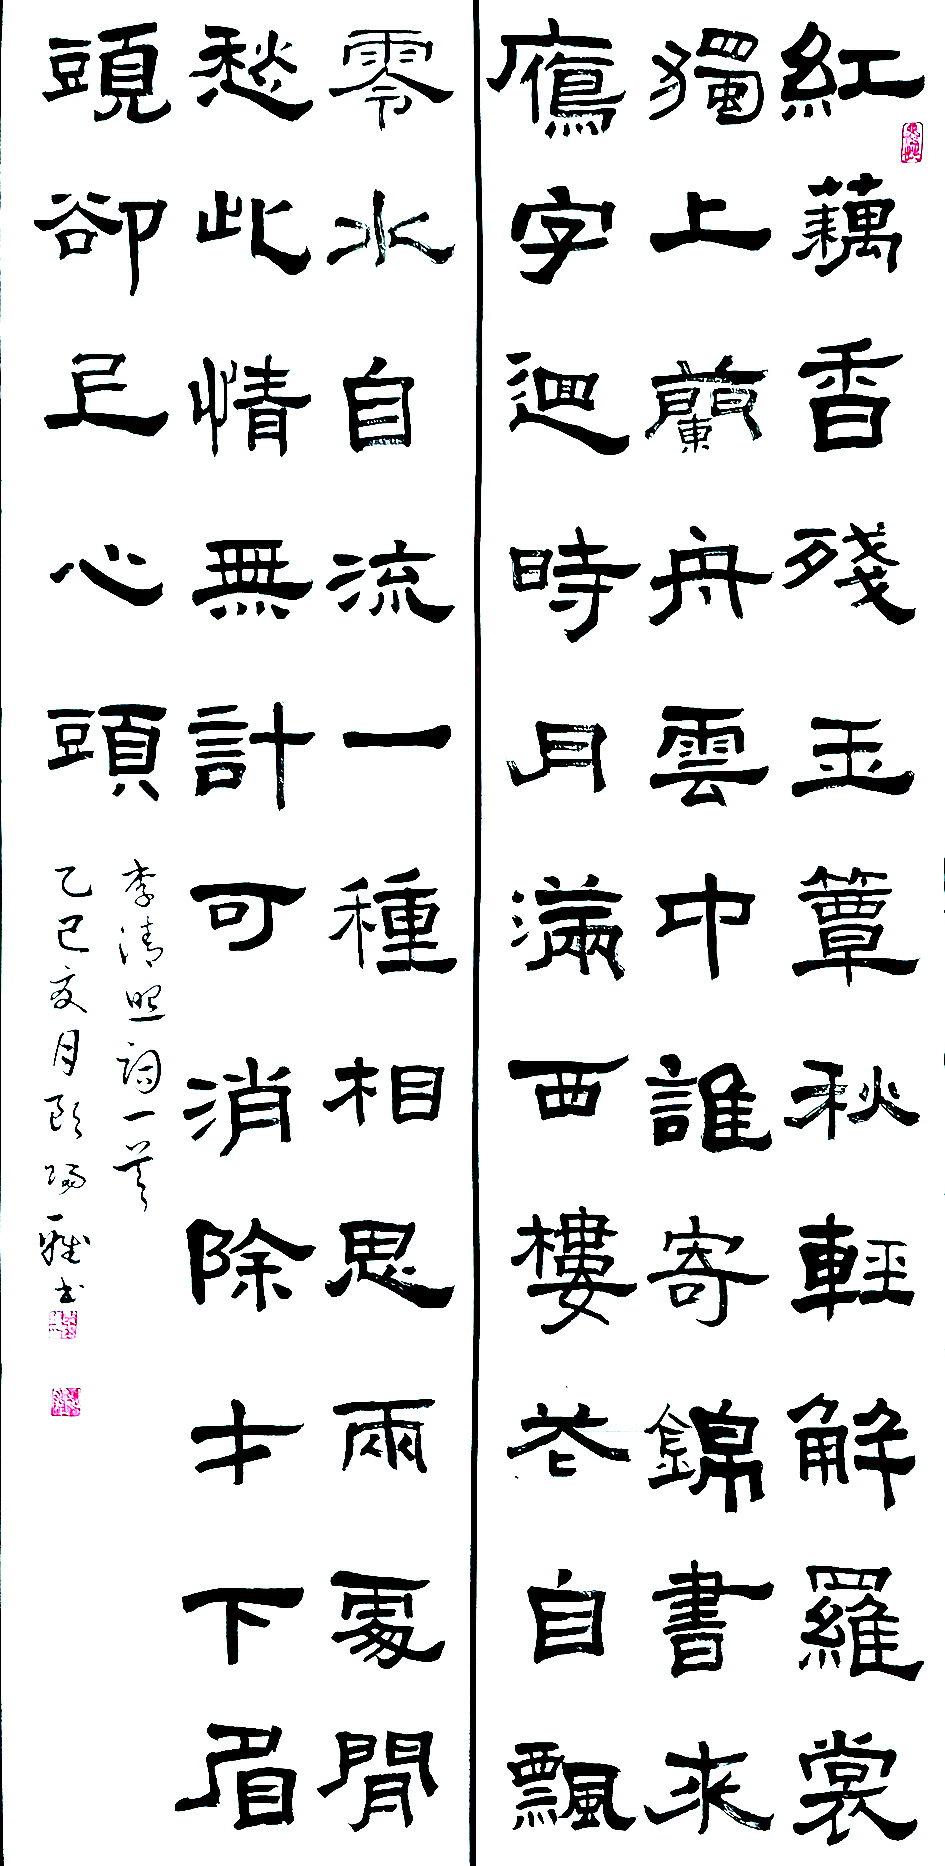 紅藕香殘玉簟秋輕解羅裳
獨上蘭舟雲中誰寄錦書來
鴈字迴時月滿西樓花自飄
零水自流一種相思兩處閒
愁此情無計可消除才下眉
頭卻上心頭
李清照詞一首
乙巳亥月歐陽書